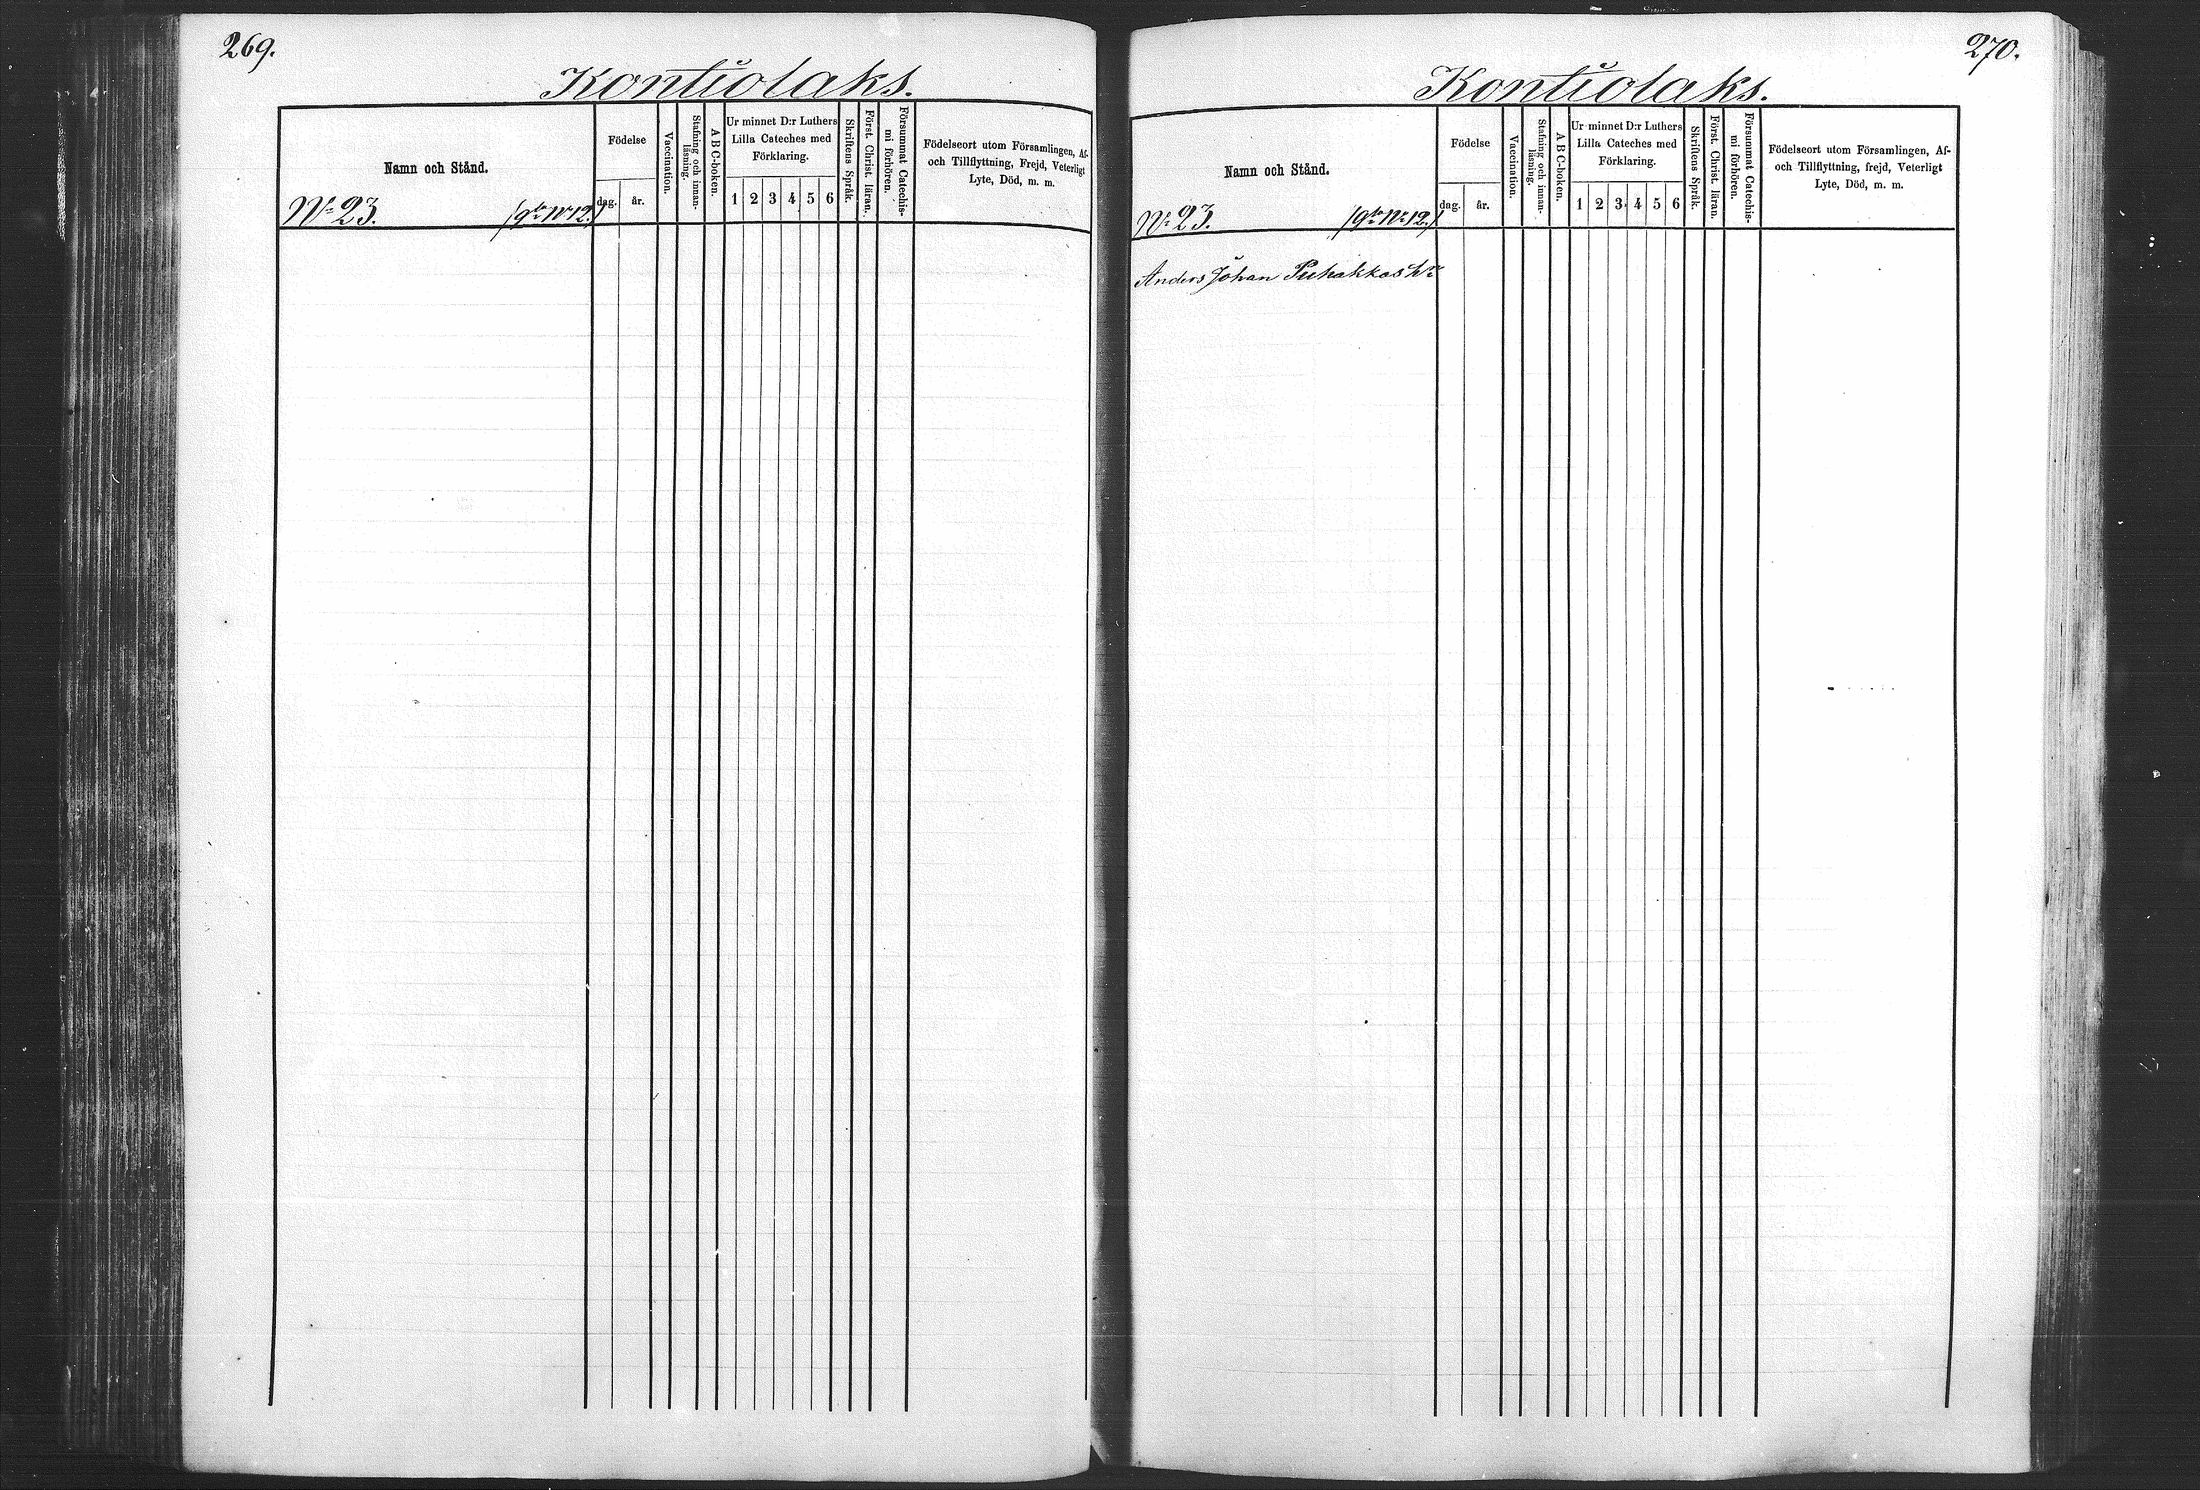 269.
Kontiolaks.
Namn och Stånd.
Födelse
dag. år.
Vaccination.
Stafning och innan-
läsning.
A B C-boken.
Ur minnet D:r Luthers
Lilla Cateches med
Förklaring.
1 2 3 4 5 6
Skriftens Språk.
Först. Christ. läran.
Försummat Catechis-
mi förhören.
Födelseort utom Församlingen, Af-
och Tillflyttning, Frejd, Veterligt
Lyte, Död, m. m.
No 23.
270.
Kontiolaks.
Namn och Stånd.
Födelse
dag. år.
Vaccination.
Stafning och innan-
läsning.
A B C-boken.
Ur minnet D:r Luthers
Lilla Cateches med
Förklaring.
1 2 3 4 5 6
Skriftens Språk.
Först. Christ. läran.
Försummat Catechis-
mi förhören.
Födelseort utom Församlingen, Af-
och Tillflyttning, frejd, Veterligt
Lyte, Död, m. m.
No 23.
Anders Johan Puhakkas